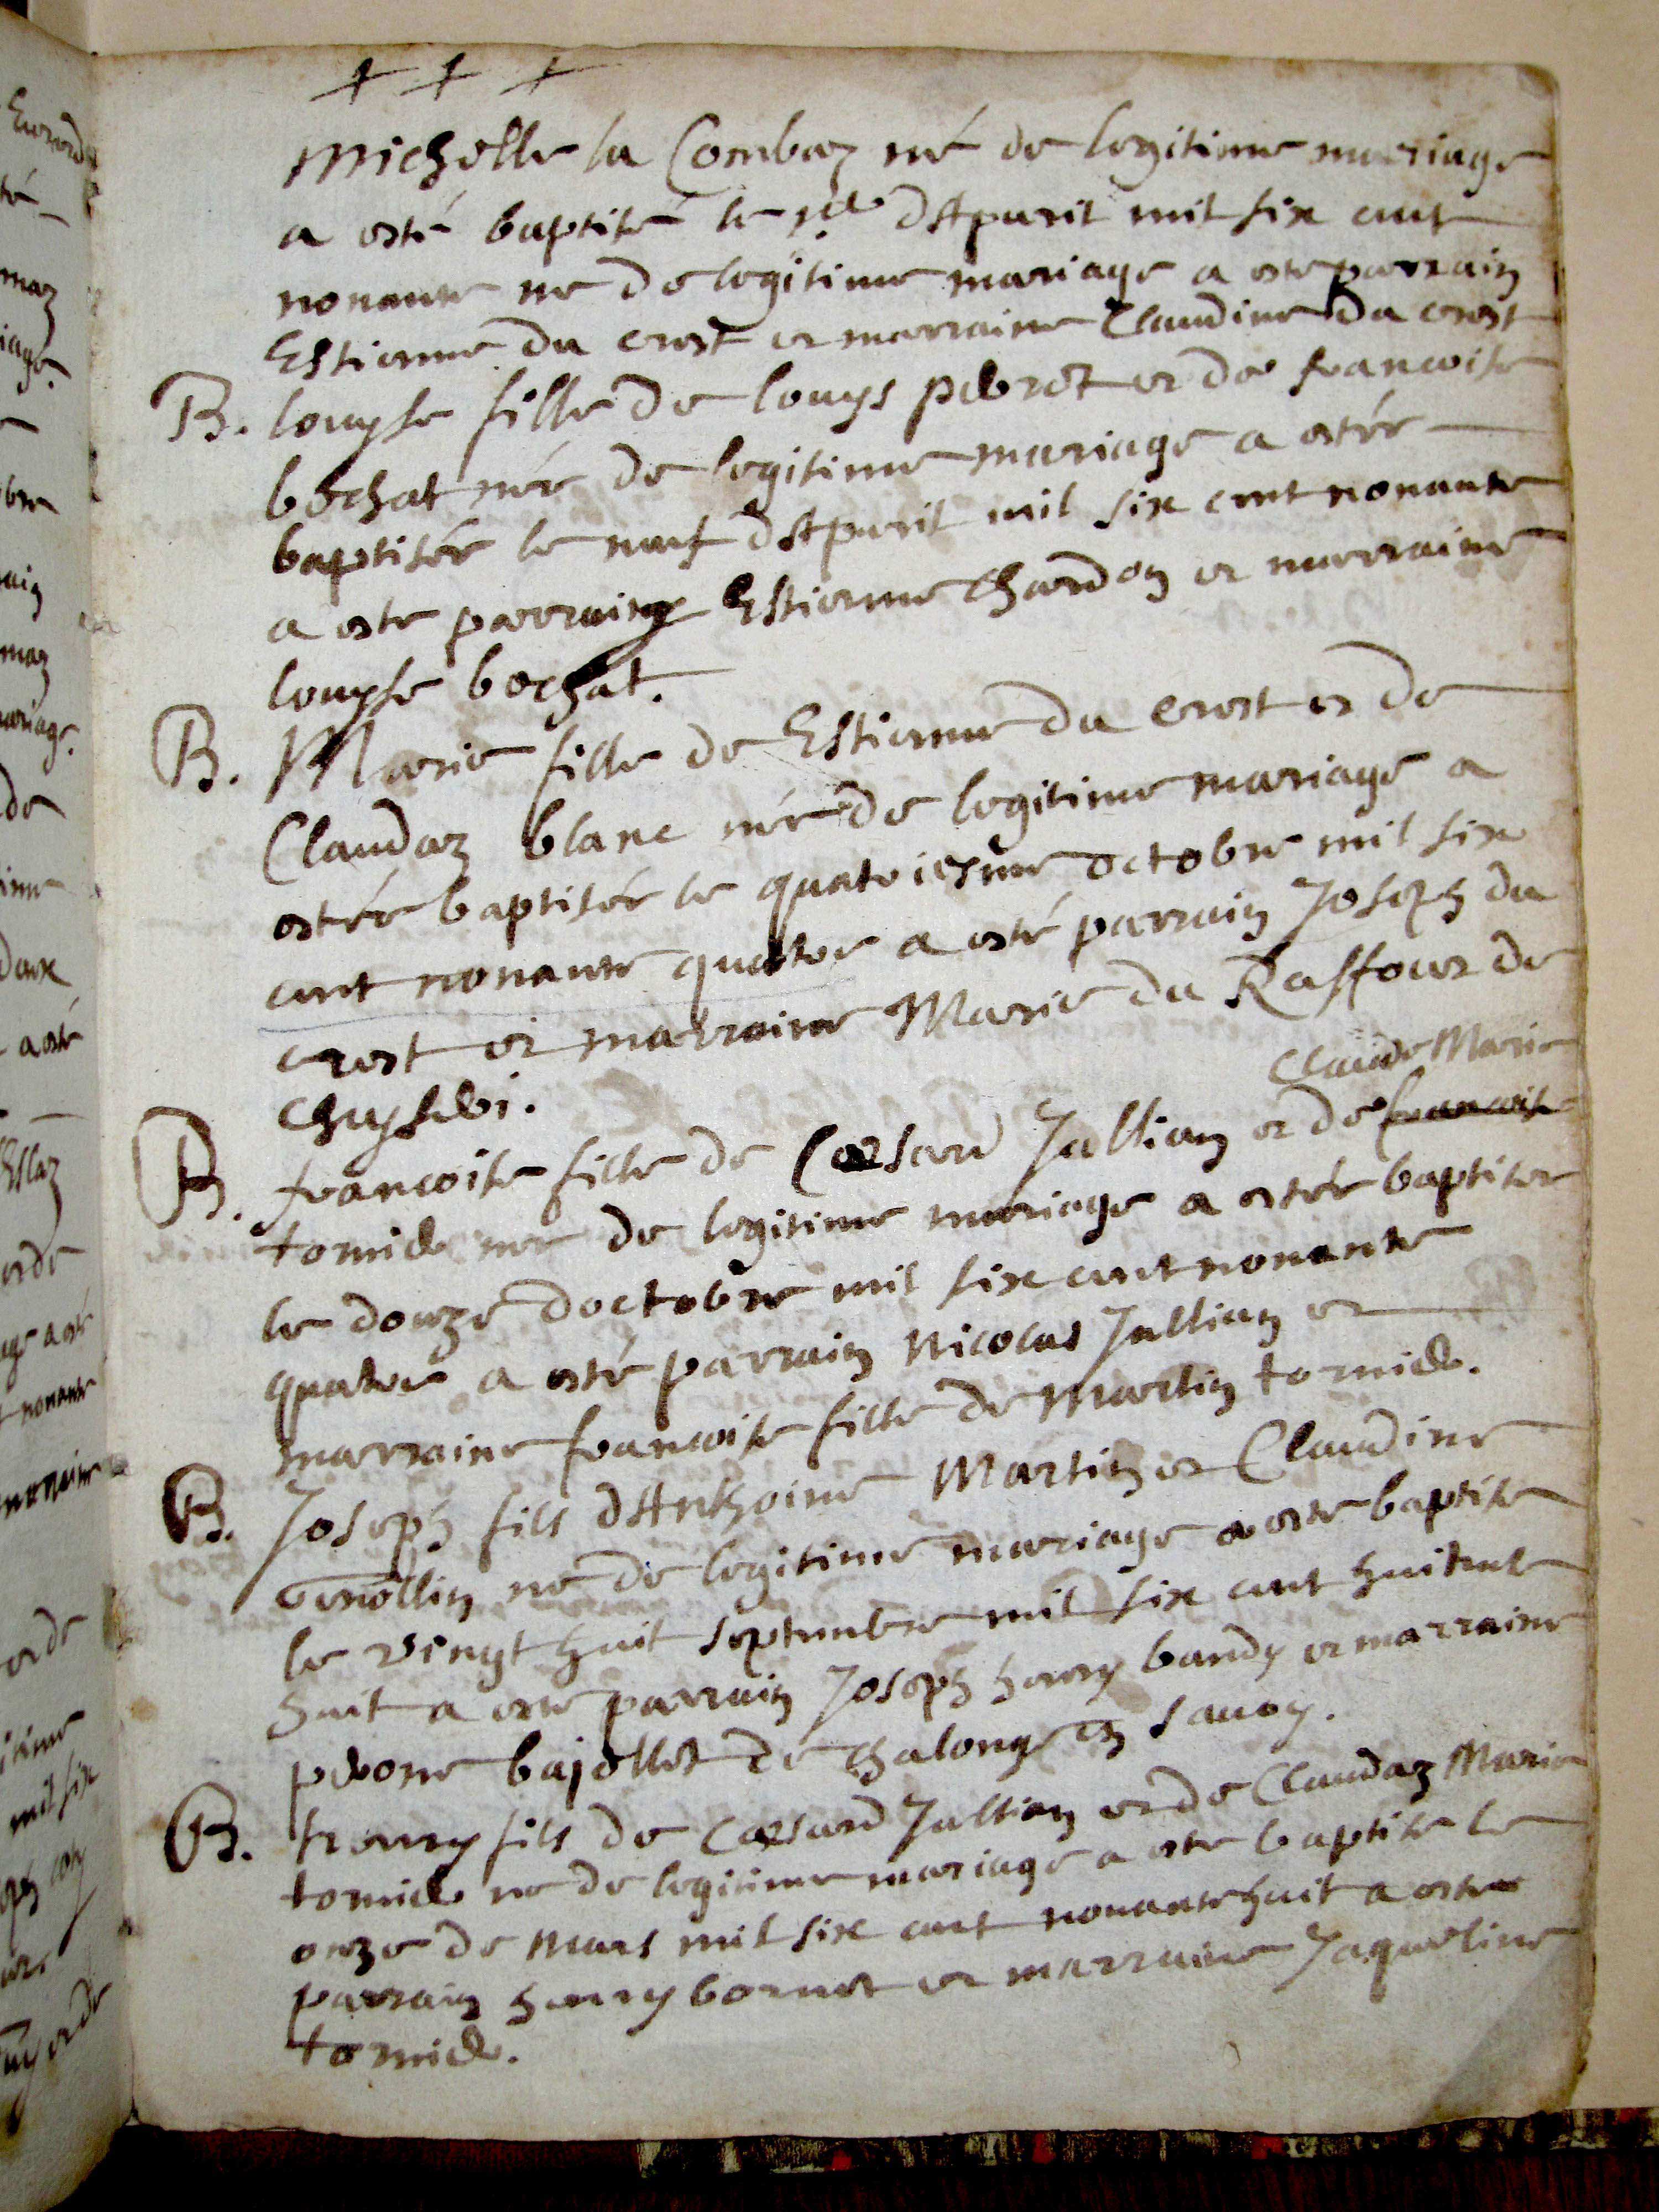 Michelle la Combaz né de legitime mariage
a esté baptisé le d'Apuril mil six cent
nonante ne de legitime mariage a este parrain
Estienne du crest et marraine Claudine du crest
B. louyse fille de louys perrot et de francoise
bochat née de legitime mariage a estée
baptisée le neuf d'Apuril mil six cent nonante
a este parrain Estienne Chardon et marraine
louyse bochat.
B. Marie fille de Estienne du crest et de
Claudaz blanc née de legitime mariage a
estée baptisée le quatriesme octobre mil six
cent nonante quatre a esté parrain Joseph du
crest et marraine Marie du Raffour de
Claude Marie
B. francoise fille de Cæsard Jullian et de francoise
tornide nee de legitime mariage a estée baptisee
le douze d'octobre mil six cent nonante
quatre a esté parrain Nicolas Jullian et
marraine francoise fille de Martin tornide.
B. Joseph fils d'Anthoine Martin et Claudine
né de legitime mariage a este baptise
le vingt huit septembre mil six cent huitante
huit a este parrain Joseph henry bandy et marraine
bajollet de Chalonge en Sauoy.
B. henry fils de Cæsard Jullian et de Claudaz Marie
tornide ne de legitime mariage a este baptise le
onze de Mars mil six cent nonante huit a este
parrain henry bornet et marraine Jaqueline
tornide.